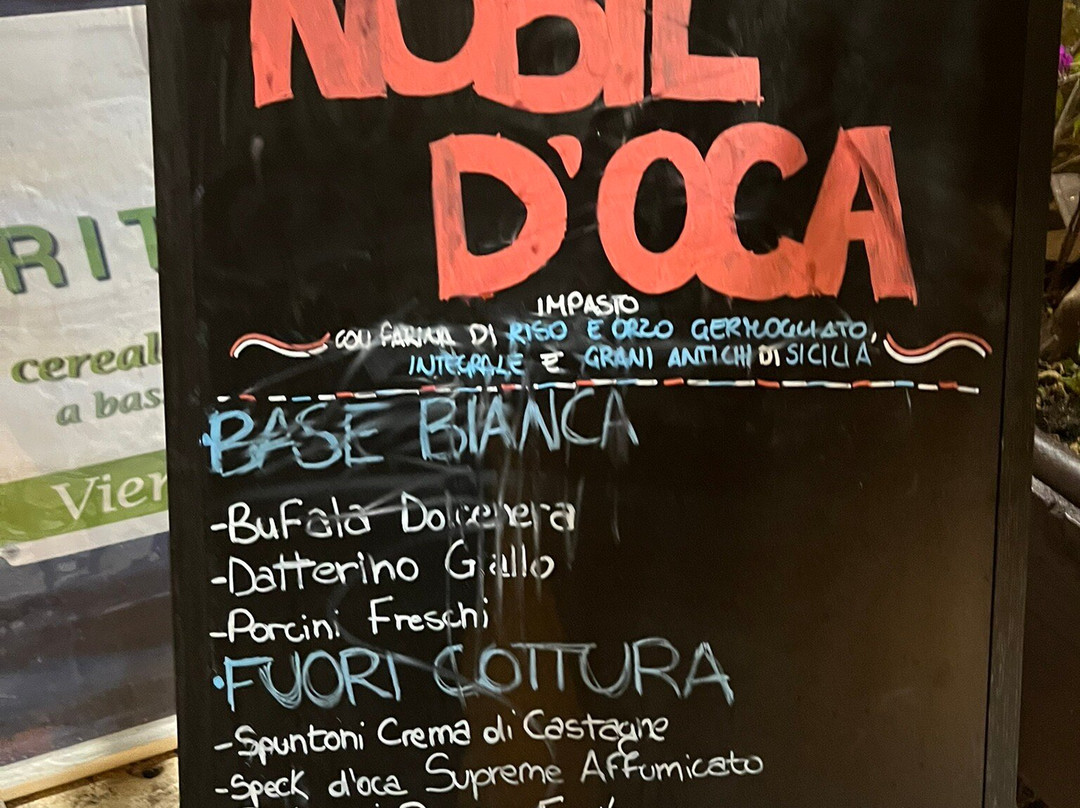 NOBIL
D'OCA
IMPASTO
CON FARINA DI RISO E ORZO GERMOGLIATO,
INTEGRALE E GRANI ANTICHI DI SICILIA
• BASE BIANCA
- Bufala Dolcenera
- Datterino Giallo
- Porcini Freschi
• FUORI COTTURA
- Spuntoni Crema di Castagne
- Speck d'oca Supreme Affumicato
RIT
cereal
a bas
Vier